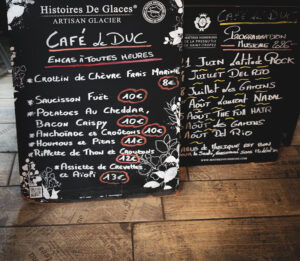 Histoires De Glaces®
ARTISAN GLACIER
CAFÉ de DUC
ENCAS à TOUTES HEURES
* CROTIN de CHÈVRE FRAIS MARINÉ
8€
* SAUCISSON FUËT 10€
* POTATOES AU CHEDDAR,
BACON CRISPY 10€
* ANCHOÏADE et CROÛTONS 10€
* HOUMOUS et PITAS 11€
* RILLETTE de THON et CROUTONS
12€
* ASSIETTE de CREVETTES
et AÏOLI 13€
CAFÉ le DUC
PROGRAMMATION
MUSICALE 2025
JUIN
JUILLET DEL RIO
JUILLET des GAVIONS
AOÛT LAURENT NADAL
AOÛT THE FULL HAIR
AOÛT les GAVIONS
AOÛT DEL RIO